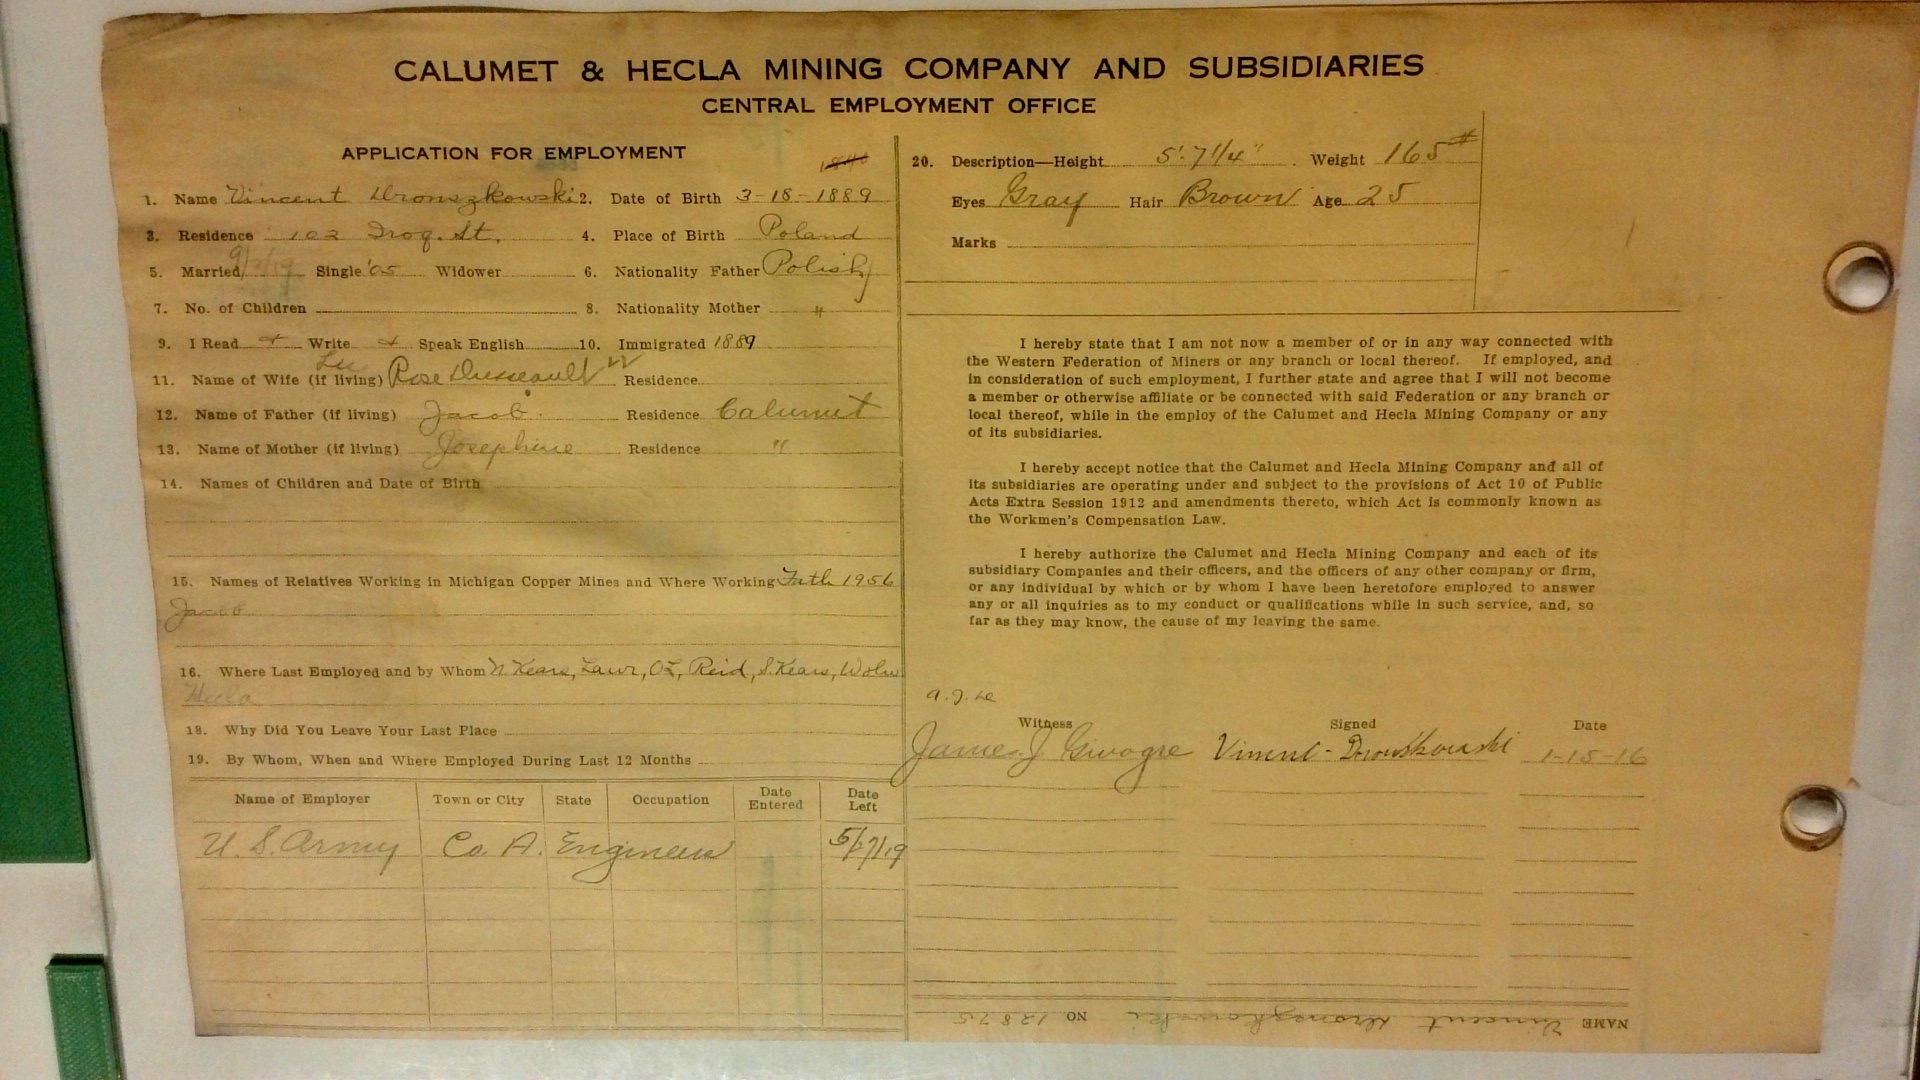 CALUMET & HECLA MINING COMPANY AND SUBSIDIARIES
CENTRAL EMPLOYMENT OFFICE
APPLICATION FOR EMPLOYMENT
1. Name Vincent Dronszkowski 2. Date of Birth 3-18-1889
3. Residence 102 Iroq. St. 4. Place of Birth Poland
5. Married Single '05 Widower 6. Nationality Father Polish
7. No. of Children 8. Nationality Mother "
9. I Read + Write + Speak English 10. Immigrated 1889
11. Name of Wife (if living) Rose Residence
12. Name of Father (if living) Jacob Residence Calumet
13. Name of Mother (if living) Josephine Residence "
14. Names of Children and Date of Birth
15. Names of Relatives Working in Michigan Copper Mines and Where Working Fath 1956
Jacob
16. Where Last Employed and by Whom N. Kears, Lawr, OL, Reid, S. Kears, Wolv
Hecla
18. Why Did You Leave Your Last Place
19. By Whom, When and Where Employed During Last 12 Months
Name of Employer Town or City State Occupation Date Entered Date Left
U. S. Army Co. A. Engineers 5/27/19
20. Description—Height 5'. 7 1/4" Weight 165#
Eyes Gray Hair Brown Age 25
Marks
I hereby state that I am not now a member of or in any way connected with
the Western Federation of Miners or any branch or local thereof. If employed, and
in consideration of such employment, I further state and agree that I will not become
a member or otherwise affiliate or be connected with said Federation or any branch or
local thereof, while in the employ of the Calumet and Hecla Mining Company or any
of its subsidiaries.
I hereby accept notice that the Calumet and Hecla Mining Company and all of
its subsidiaries are operating under and subject to the provisions of Act 10 of Public
Acts Extra Session 1912 and amendments thereto, which Act is commonly known as
the Workmen's Compensation Law.
I hereby authorize the Calumet and Hecla Mining Company and each of its
subsidiary Companies and their officers, and the officers of any other company or firm,
or any individual by which or by whom I have been heretofore employed to answer
any or all inquiries as to my conduct or qualifications while in such service, and, so
far as they may know, the cause of my leaving the same.
Witness Signed Date
James J 1-15-16
NAME Vincent Dronszkowski NO. 12875